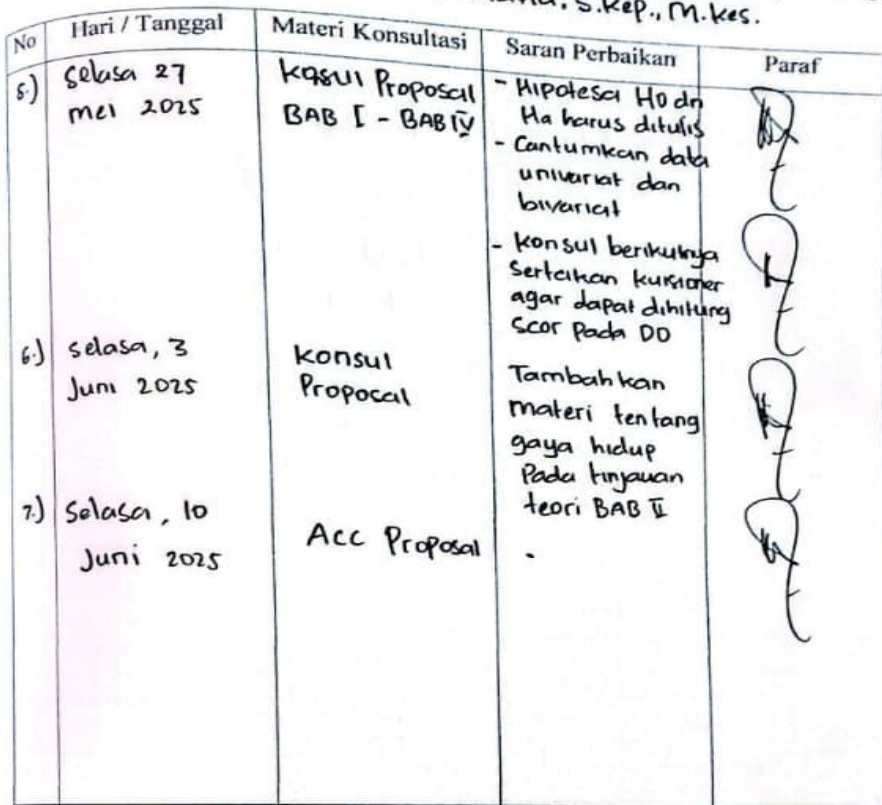 S.Kep., M.Kes.
No Hari / Tanggal Materi Konsultasi Saran Perbaikan Paraf
5.) Selasa 27
mei 2025
Kosul Proposal
BAB I - BAB IV
- Hipotesa Ho dn
Ha harus ditulis
- Cantumkan data
univariat dan
bivariat
- Konsul berikutnya
Sertakan kuisioner
agar dapat dihitung
Scor Pada DO
6.) Selasa, 3
Juni 2025
Konsul
Proposal
Tambahkan
materi tentang
gaya hidup
Pada tinjauan
teori BAB II
7.) Selasa, 10
Juni 2025
Acc Proposal